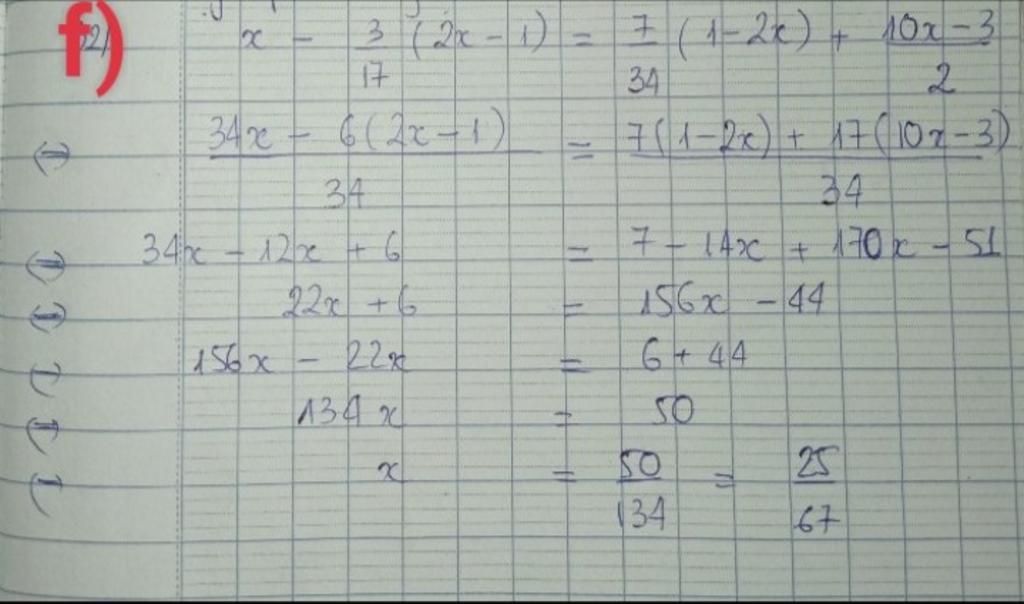 f) x - 3/17 (2x - 1) = 7/34 (1 - 2x) + (10x - 3)/2
⇔ (34x - 6(2x - 1))/34 = (7(1 - 2x) + 17(10x - 3))/34
⇔ 34x - 12x + 6 = 7 - 14x + 170x - 51
⇔ 22x + 6 = 156x - 44
⇔ 156x - 22x = 6 + 44
⇔ 134x = 50
⇔ x = 50/134 = 25/67